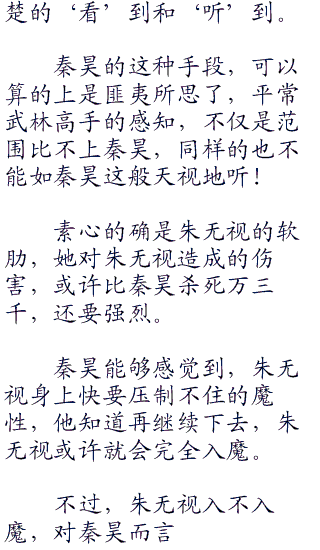 楚的‘看’到和‘听’到。
秦昊的这种手段，可以
算的上是匪夷所思了，平常
武林高手的感知，不仅是范
围比不上秦昊，同样的也不
能如秦昊这般天视地听！
素心的确是朱无视的软
肋，她对朱无视造成的伤
害，或许比秦昊杀死万三
千，还要强烈。
秦昊能够感觉到，朱无
视身上快要压制不住的魔
性，他知道再继续下去，朱
无视或许就会完全入魔。
不过，朱无视入不入
魔，对秦昊而言